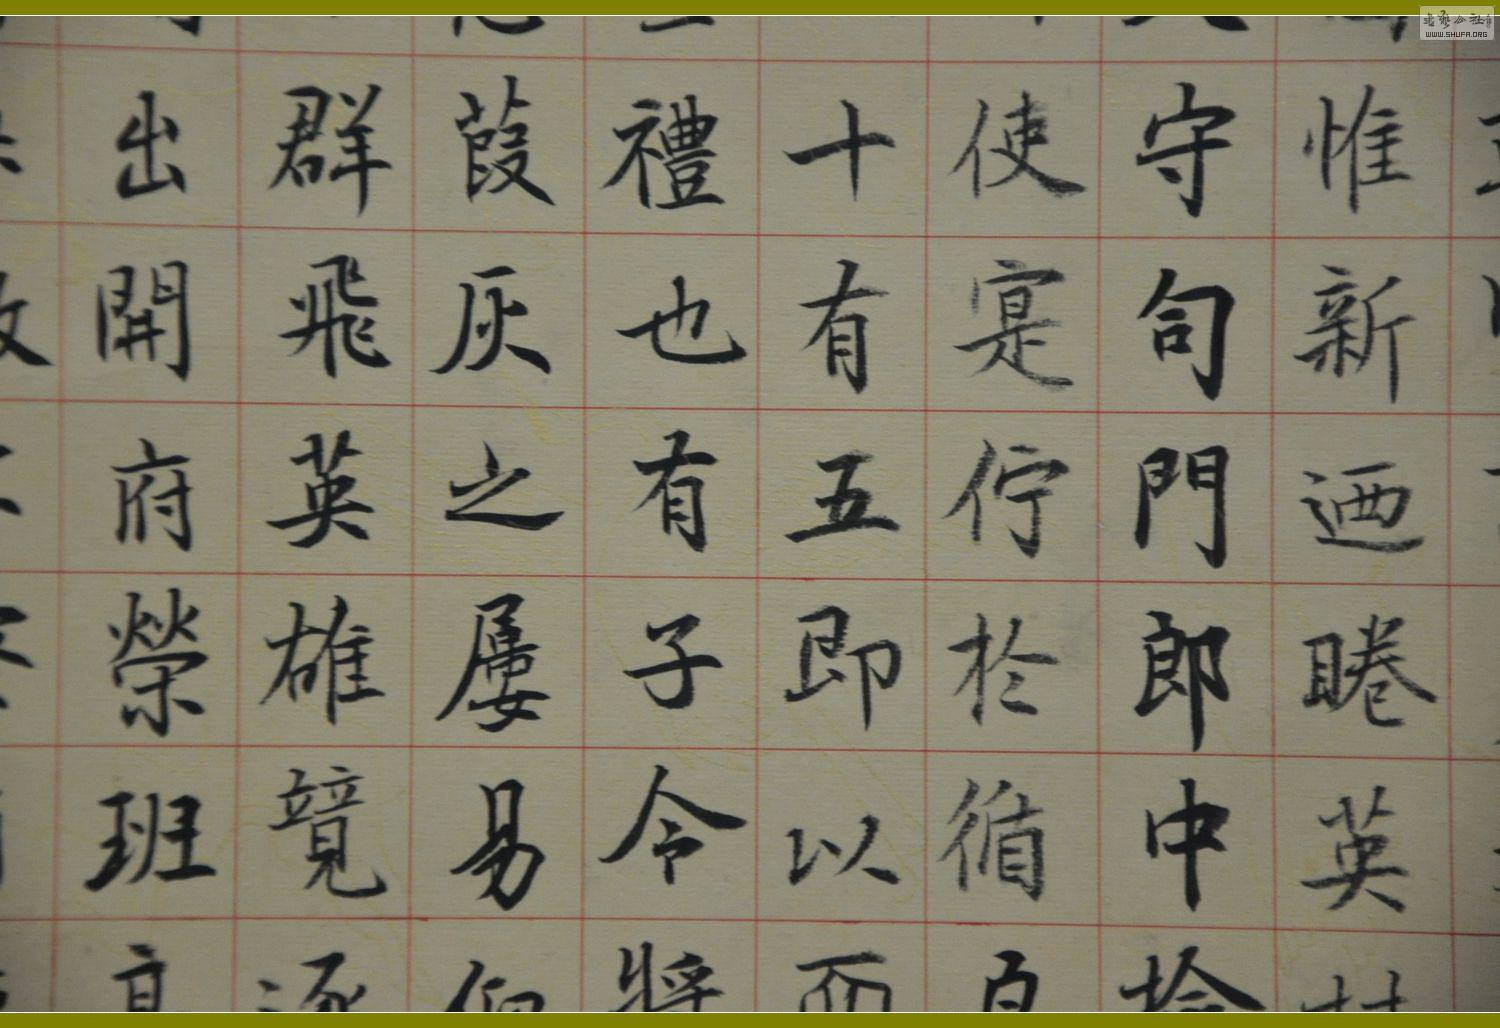 惟新迺睠英
守句門郎中
使寔佇於循
十有五即以而
禮也有子令將
葭灰之屢易
群飛英雄競逐
出開府榮班
WWW.SHUFA.ORG